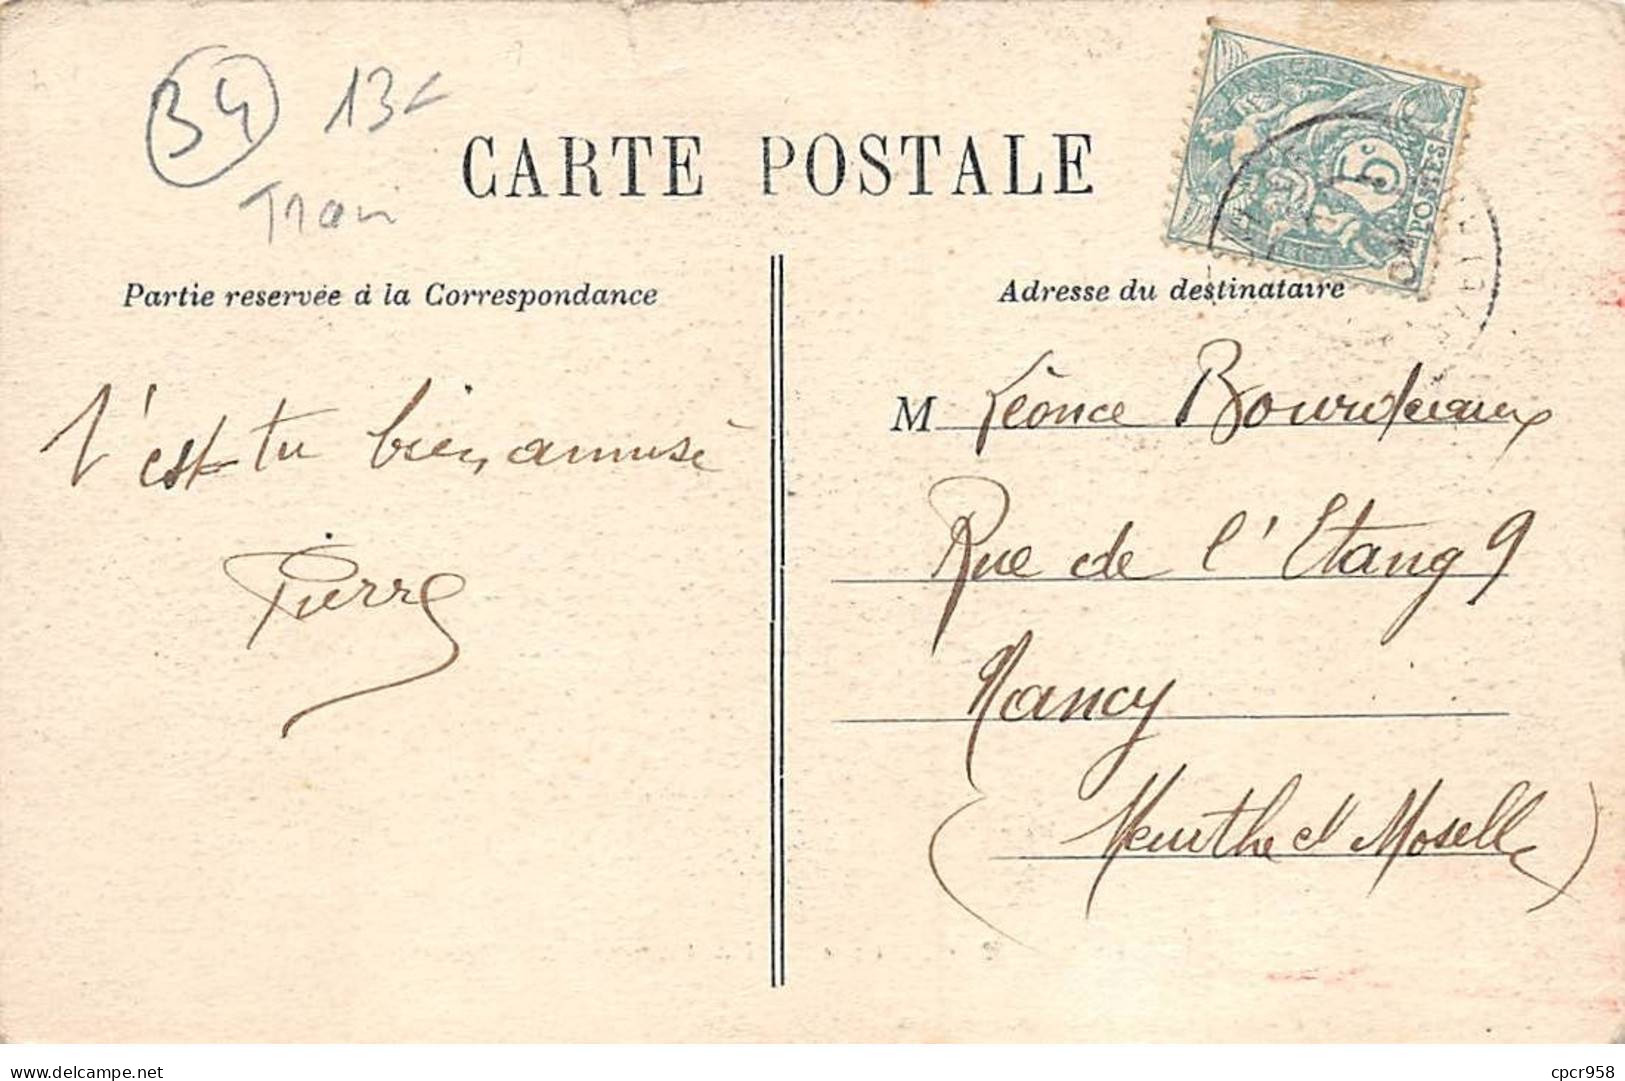 34 13€
CARTE POSTALE
5c
POSTES
Partie reservée à la Correspondance
Adresse du destinataire
T'est tu bien amusé
Pierre
M Léonce Bourdeaux
Rue de l'Etang 9
Nancy
(Meurthe et Moselle)
www.delcampe.net
cpcr958